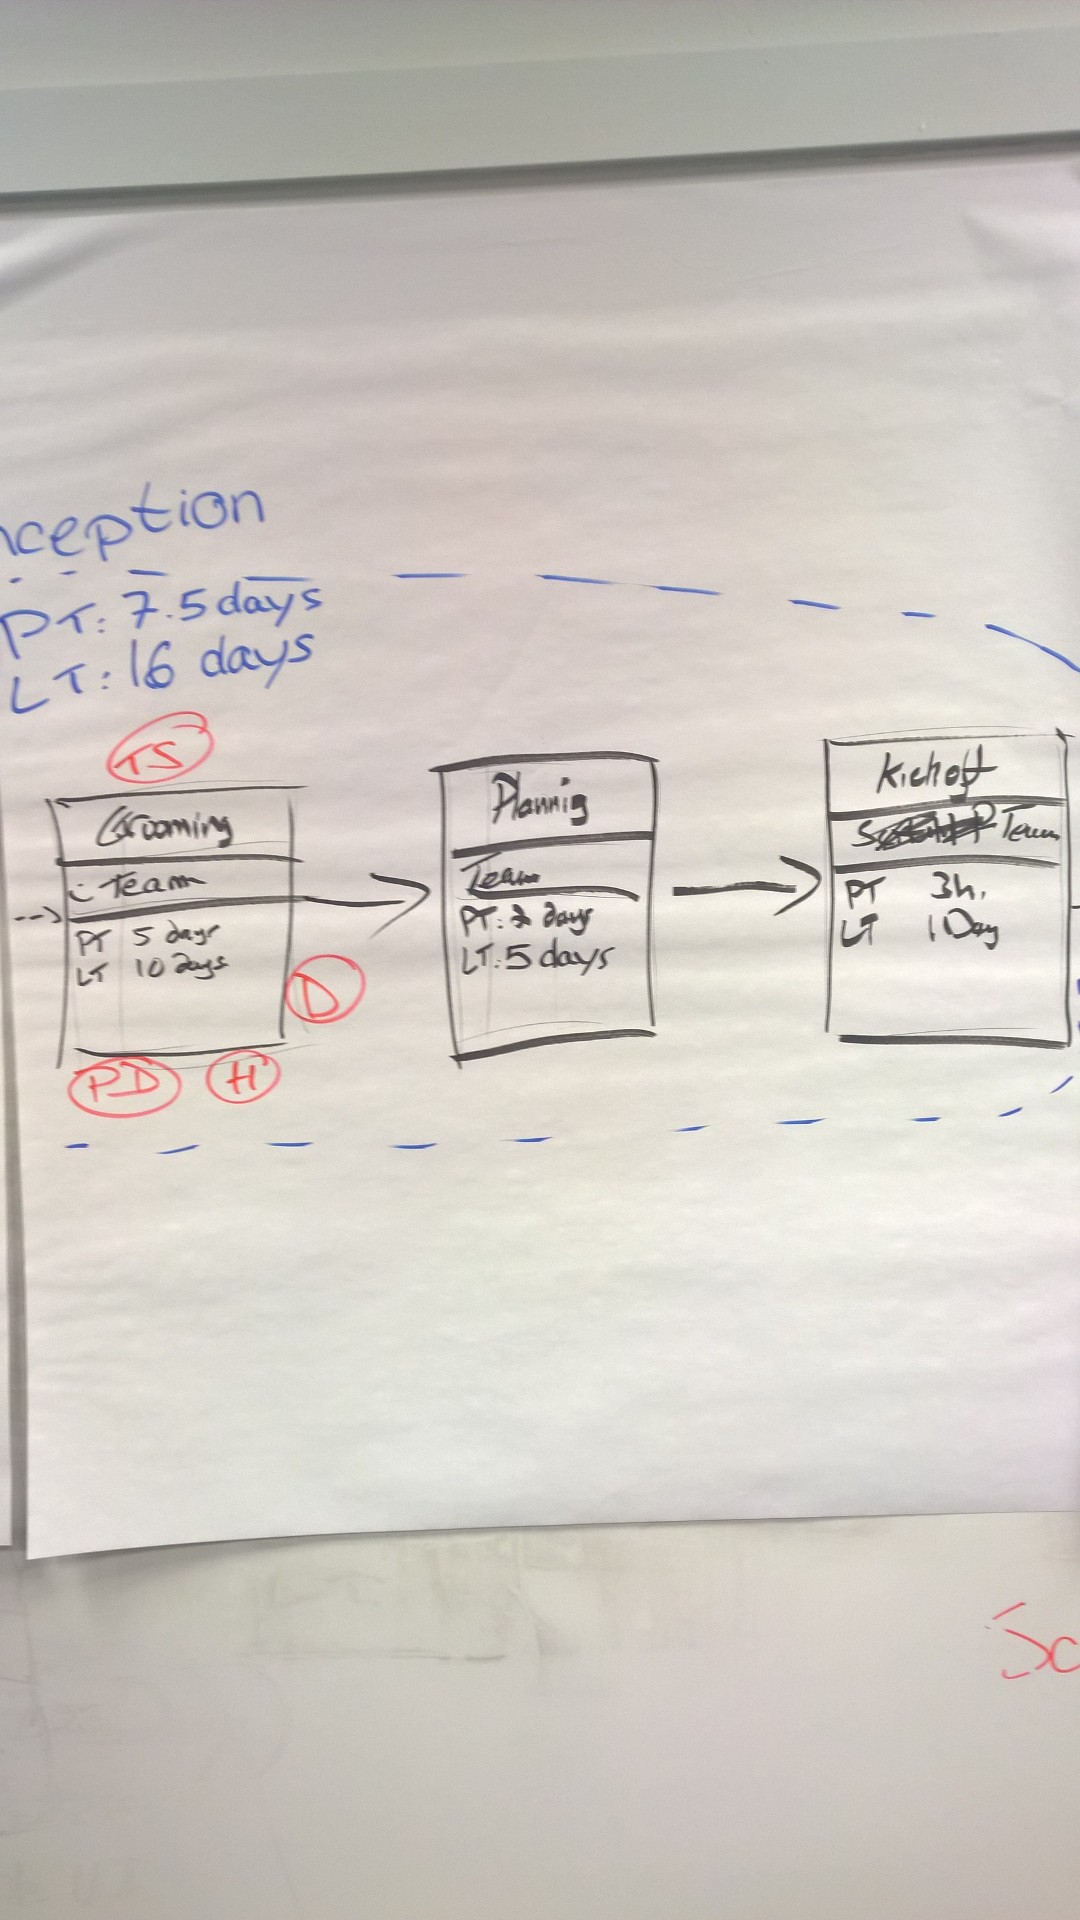 nception
PT: 7.5 days
LT: 16 days
TS
Grooming
Team
PT 5 days
LT 10 days
D
PD
H
Plannig
Team
PT: 2 days
LT: 5 days
Kickoff
Team
PT 3h.
LT 1 Day
Sc